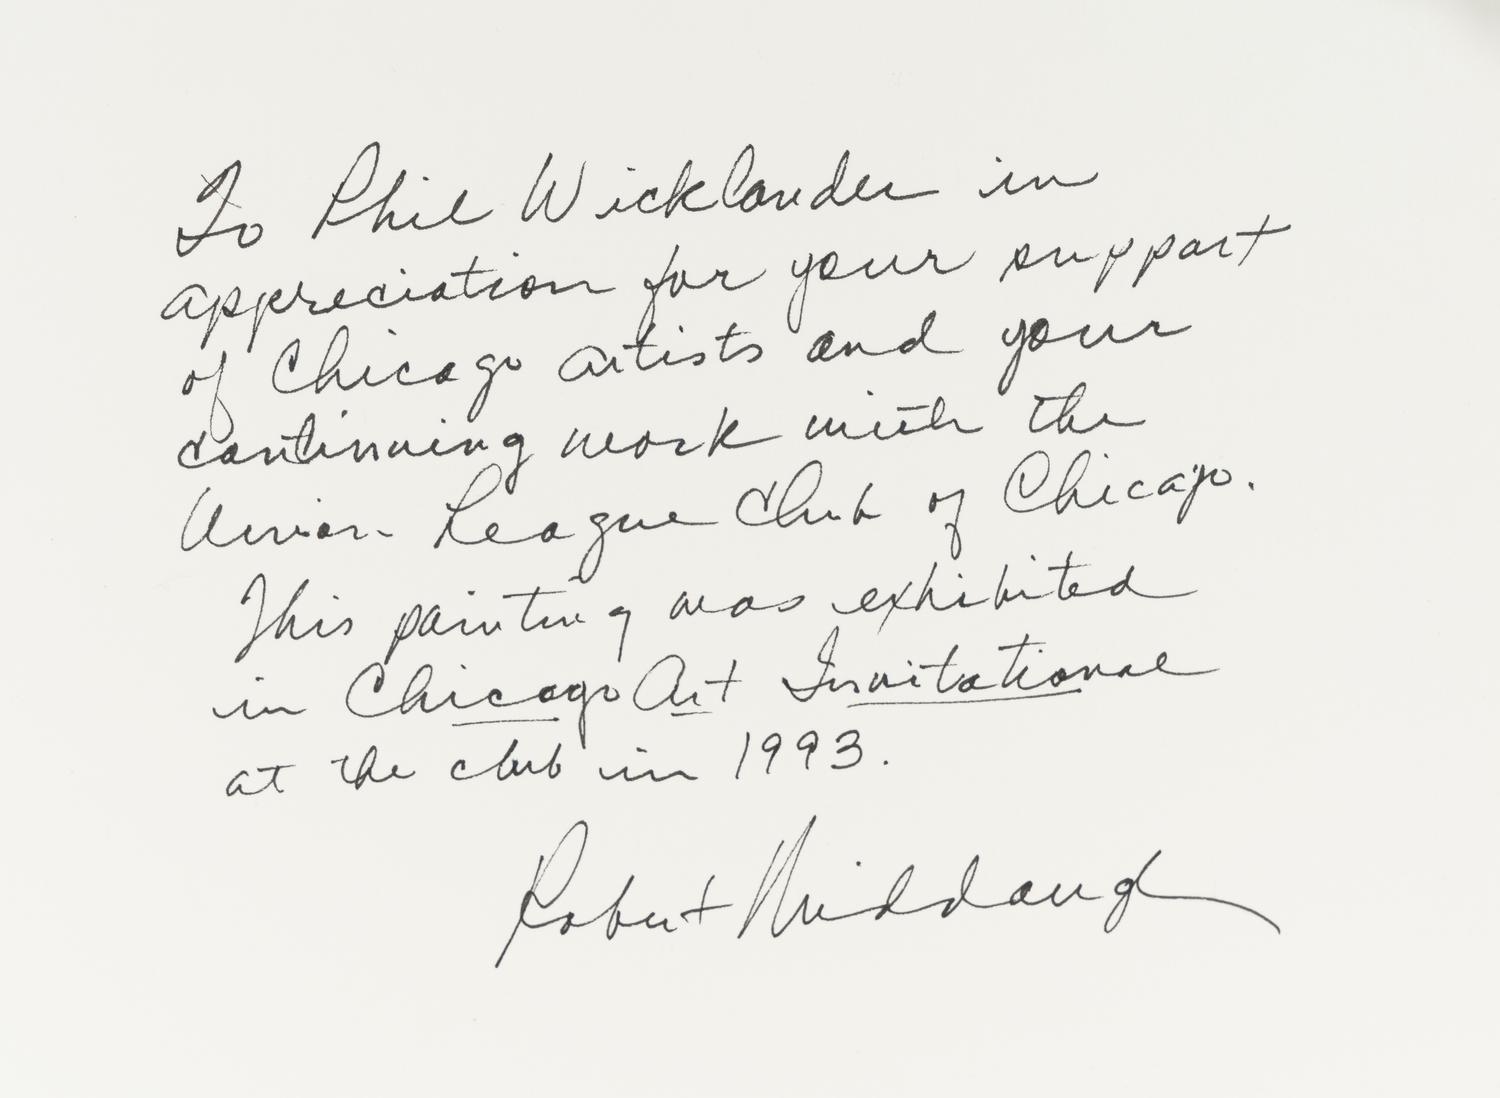 To Phil Wicklander in
appreciation for your support
of Chicago artists and your
continuing work with the
Union League Club of Chicago.
This painting was exhibited
in Chicago Art Invitational
at the club in 1993.
Robert Middaugh